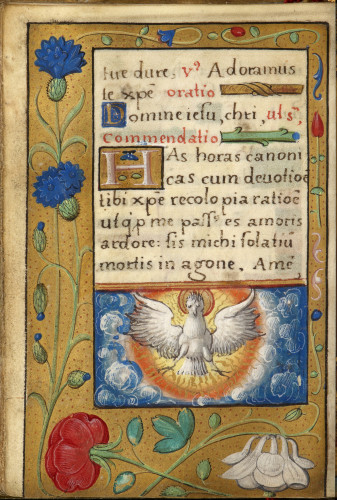 ture dure. v̊. Adoramus
te xp̄e oratio
Domine iesu, chri, ut sͣ.
Commendatio
HAs horas canoni
cas cum deuotioē
tibi xp̄e recolo pia ratioē
ut q̄ p me pass̄ es amoris
ardore: sis michi solatiū
mortis in agone. Amē